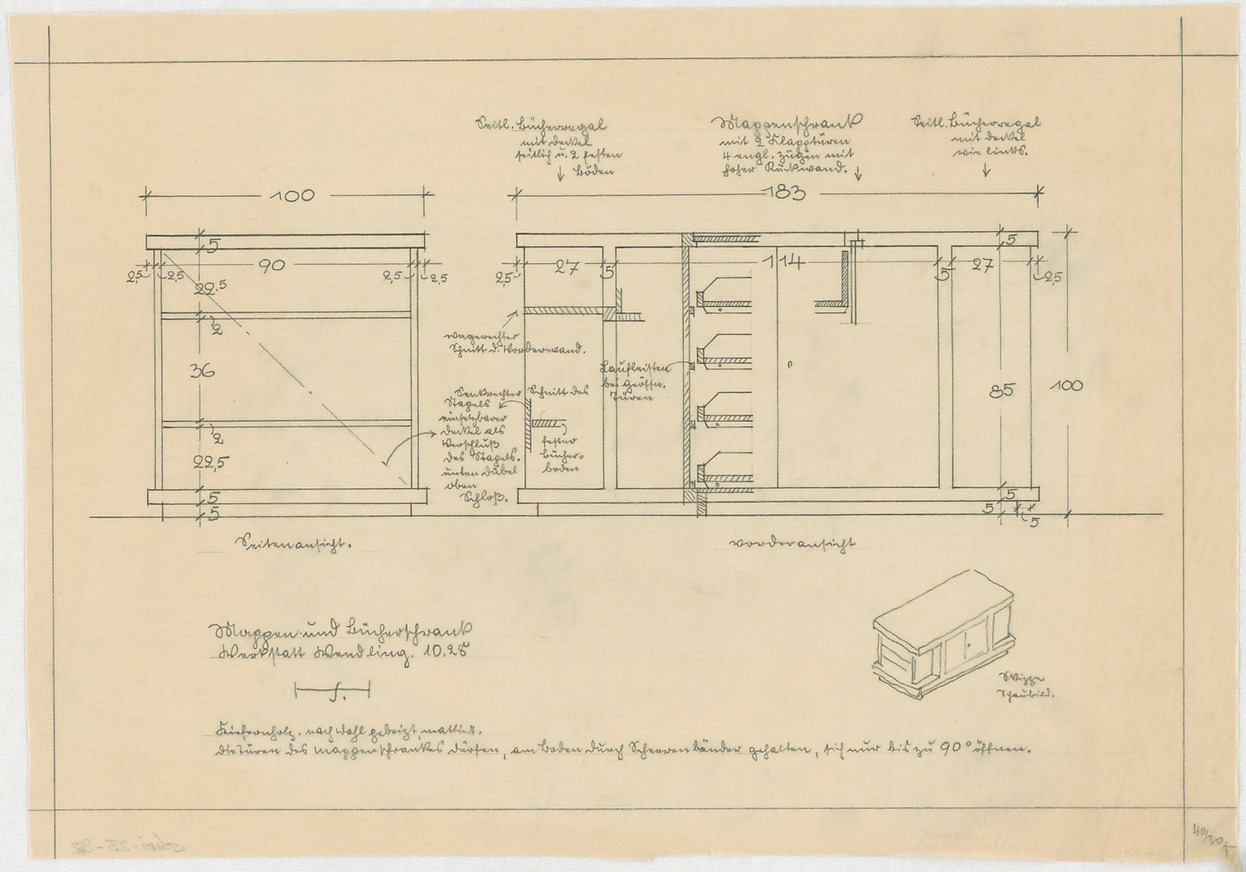 Seitl. Bücherregal
mit Deckel
seitlich u. 2 festen
Böden
Mappenschrank
mit 2 Klapptüren
4 engl. Zügen mit
hoher Rückwand.
Seitl. Bücherregal
mit Deckel
wie links.
100
183
5
90
2,5
2,5
2,5
2,5
22,5
2
36
2
22,5
5
5
2,5
27
5
114
5
27
5
2,5
85
100
5
5
5
wagerechter
Schnitt d. Vorderwand.
Senkrechter Schnitt des
Stapels
einsetzbarer
Deckel als
Verschluß
des Stapels.
unten Dübel
oben
Schloß.
fester
Bücher-
boden
Laufleisten
bei geöffn.
Türen
Seitenansicht.
Vorderansicht
Mappen- und Bücherschrank
Werkstatt Wendling. 10.28
Skizze
Schaubild.
Kiefernholz. nach Wahl gebeizt, mattiert.
Die Türen des Mappenschrankes dürfen, am Boden durch Scherenbänder gehalten, sich nur bis zu 90° öffnen.